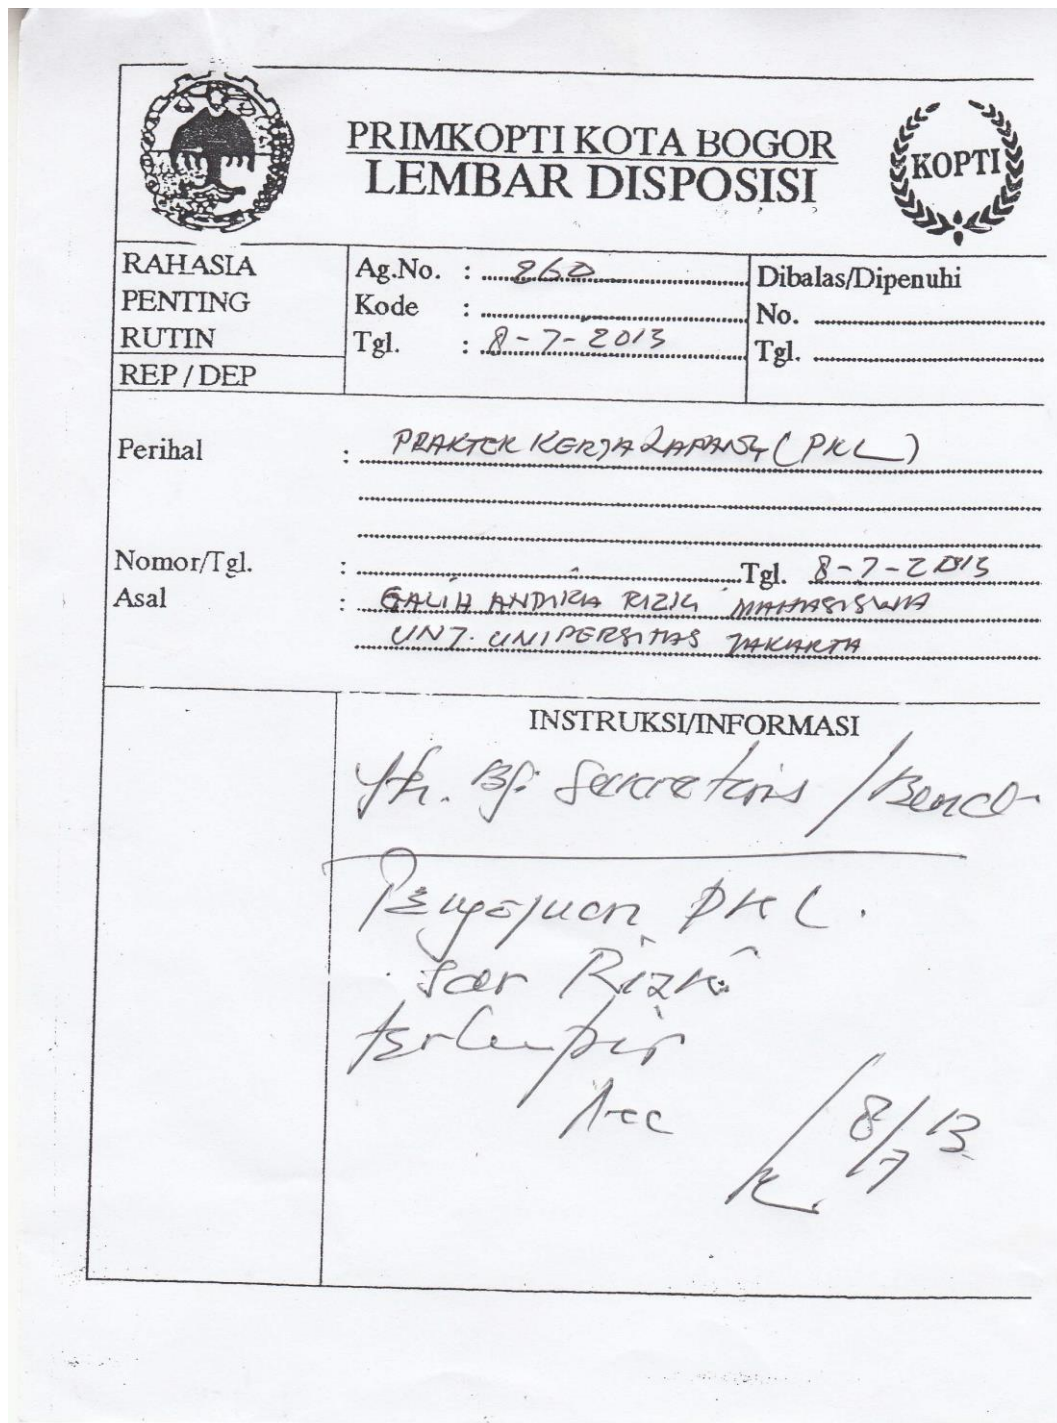 PRIMKOPTI KOTA BOGOR
LEMBAR DISPOSISI
KOPTI
RAHASIA
PENTING
RUTIN
REP / DEP
Ag.No. : 260
Kode :
Tgl. : 8-7-2013
Dibalas/Dipenuhi
No.
Tgl.
Perihal : PRAKTEK KERJA LAPANG (PKL)
Nomor/Tgl. : Tgl. 8-7-2013
Asal : GALIH ANDIKA RIZKI MAHASISWA
UNJ. UNIPERSITAS JAKARTA
INSTRUKSI/INFORMASI
Yth. Bp. Secretaris / Bend
Pengajuan PKL.
Sdr Rizki
terlampir
Acc
8/7 13